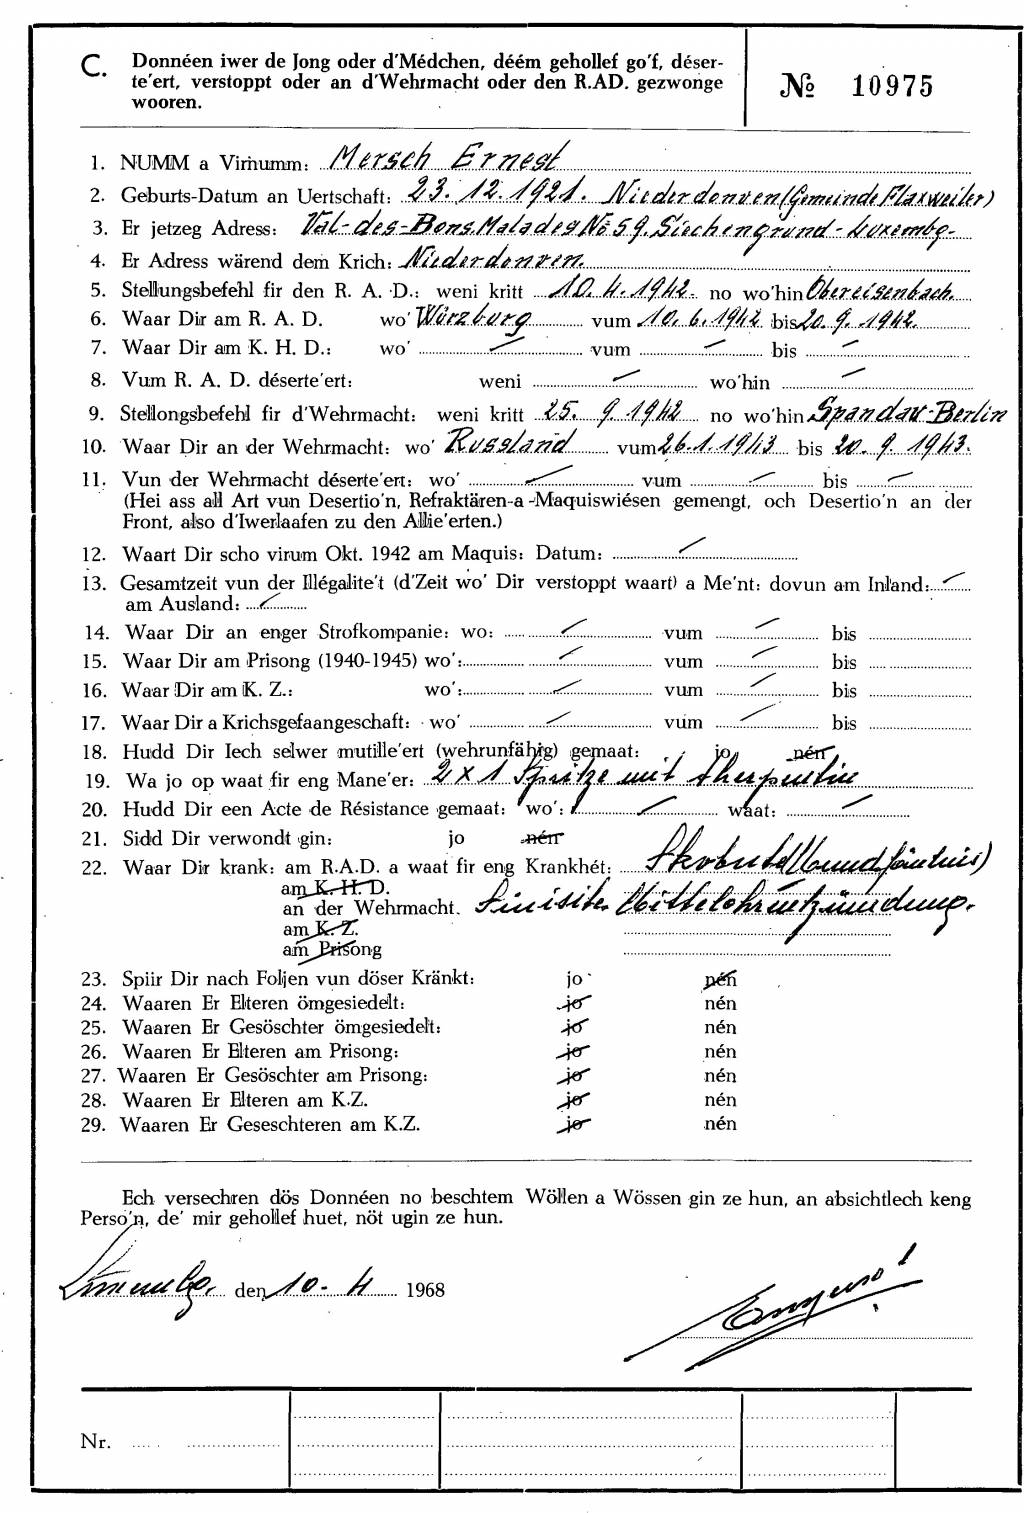 C. Donnéen iwer de Jong oder d'Médchen, déém gehollef go'f, déser-
te'ert, verstoppt oder an d'Wehrmacht oder den R.AD. gezwonge
wooren.
№ 10975
1. NUMM a Virnumm: Mersch Ernest
2. Geburts-Datum an Uertschaft: 23. 12. 1921. Niederdonven (Gemeinde Flaxweiler)
3. Er jetzeg Adress: Val-des-Bons Malades No 59. Siechengrund - Luxembg-
4. Er Adress wärend dem Krich: Niederdonven.
5. Stellungsbefehl fir den R. A. D.: weni kritt 10. 4. 1942. no wo'hin Obereisenbach.
6. Waar Dir am R. A. D. wo' Würzburg vum 10. 6. 1942 bis 20. 9. 1942.
7. Waar Dir am K. H. D.: wo' / vum / bis /
8. Vum R. A. D. déserte'ert: weni / wo'hin /
9. Stellongsbefehl fir d'Wehrmacht: weni kritt 25. 9. 1942 no wo'hin Spandau-Berlin
10. Waar Dir an der Wehrmacht: wo' Russland vum 26. 1. 1943 bis 20. 9. 1943.
11. Vun der Wehrmacht déserte'ert: wo' / vum / bis /
(Hei ass all Art vun Desertio'n, Refraktären-a -Maquiswiésen gemengt, och Desertio'n an der
Front, also d'Iwerlaafen zu den Allie'erten.)
12. Waart Dir scho virum Okt. 1942 am Maquis: Datum: /
13. Gesamtzeit vun der Illégalite't (d'Zeit wo' Dir verstoppt waart) a Me'nt: dovun am Inland: /
am Ausland: /
14. Waar Dir an enger Strofkompanie: wo: / vum / bis
15. Waar Dir am Prisong (1940-1945) wo': / vum / bis
16. Waar Dir am K. Z.: wo': / vum / bis
17. Waar Dir a Krichsgefaangeschaft: wo' / vum / bis
18. Hudd Dir Iech selwer mutille'ert (wehrunfähig) gemaat: jo nén
19. Wa jo op waat fir eng Mane'er: 2 x 1 Spritze mit therpentin
20. Hudd Dir een Acte de Résistance gemaat: wo': / waat: /
21. Sidd Dir verwondt gin: jo nén
22. Waar Dir krank: am R.A.D. a waat fir eng Krankhét: Skorbut (Mundfäulnis)
am K. H. D.
an der Wehrmacht. Sinisite Mittelohrentzündung.
am K. Z.
am Prisong
23. Spiir Dir nach Foljen vun döser Kränkt: jo nén
24. Waaren Er Elteren ömgesiedelt: jo nén
25. Waaren Er Gesöschter ömgesiedelt: jo nén
26. Waaren Er Elteren am Prisong: jo nén
27. Waaren Er Gesöschter am Prisong: jo nén
28. Waaren Er Elteren am K.Z. jo nén
29. Waaren Er Geseschteren am K.Z. jo nén
Ech versechren dös Donnéen no beschtem Wöllen a Wössen gin ze hun, an absichtlech keng
Perso'n, de' mir gehollef huet, nöt ugin ze hun.
Luxembg. den 10 - 4 1968
Nr.